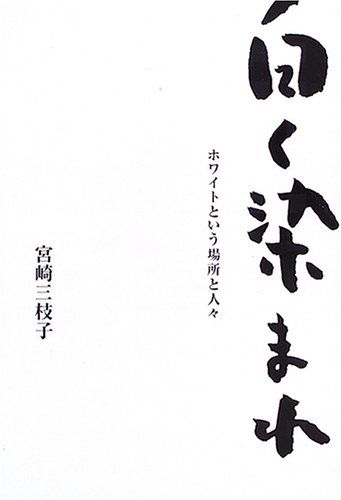 白く染まれ
ホワイトという場所と人々
宮崎三枝子